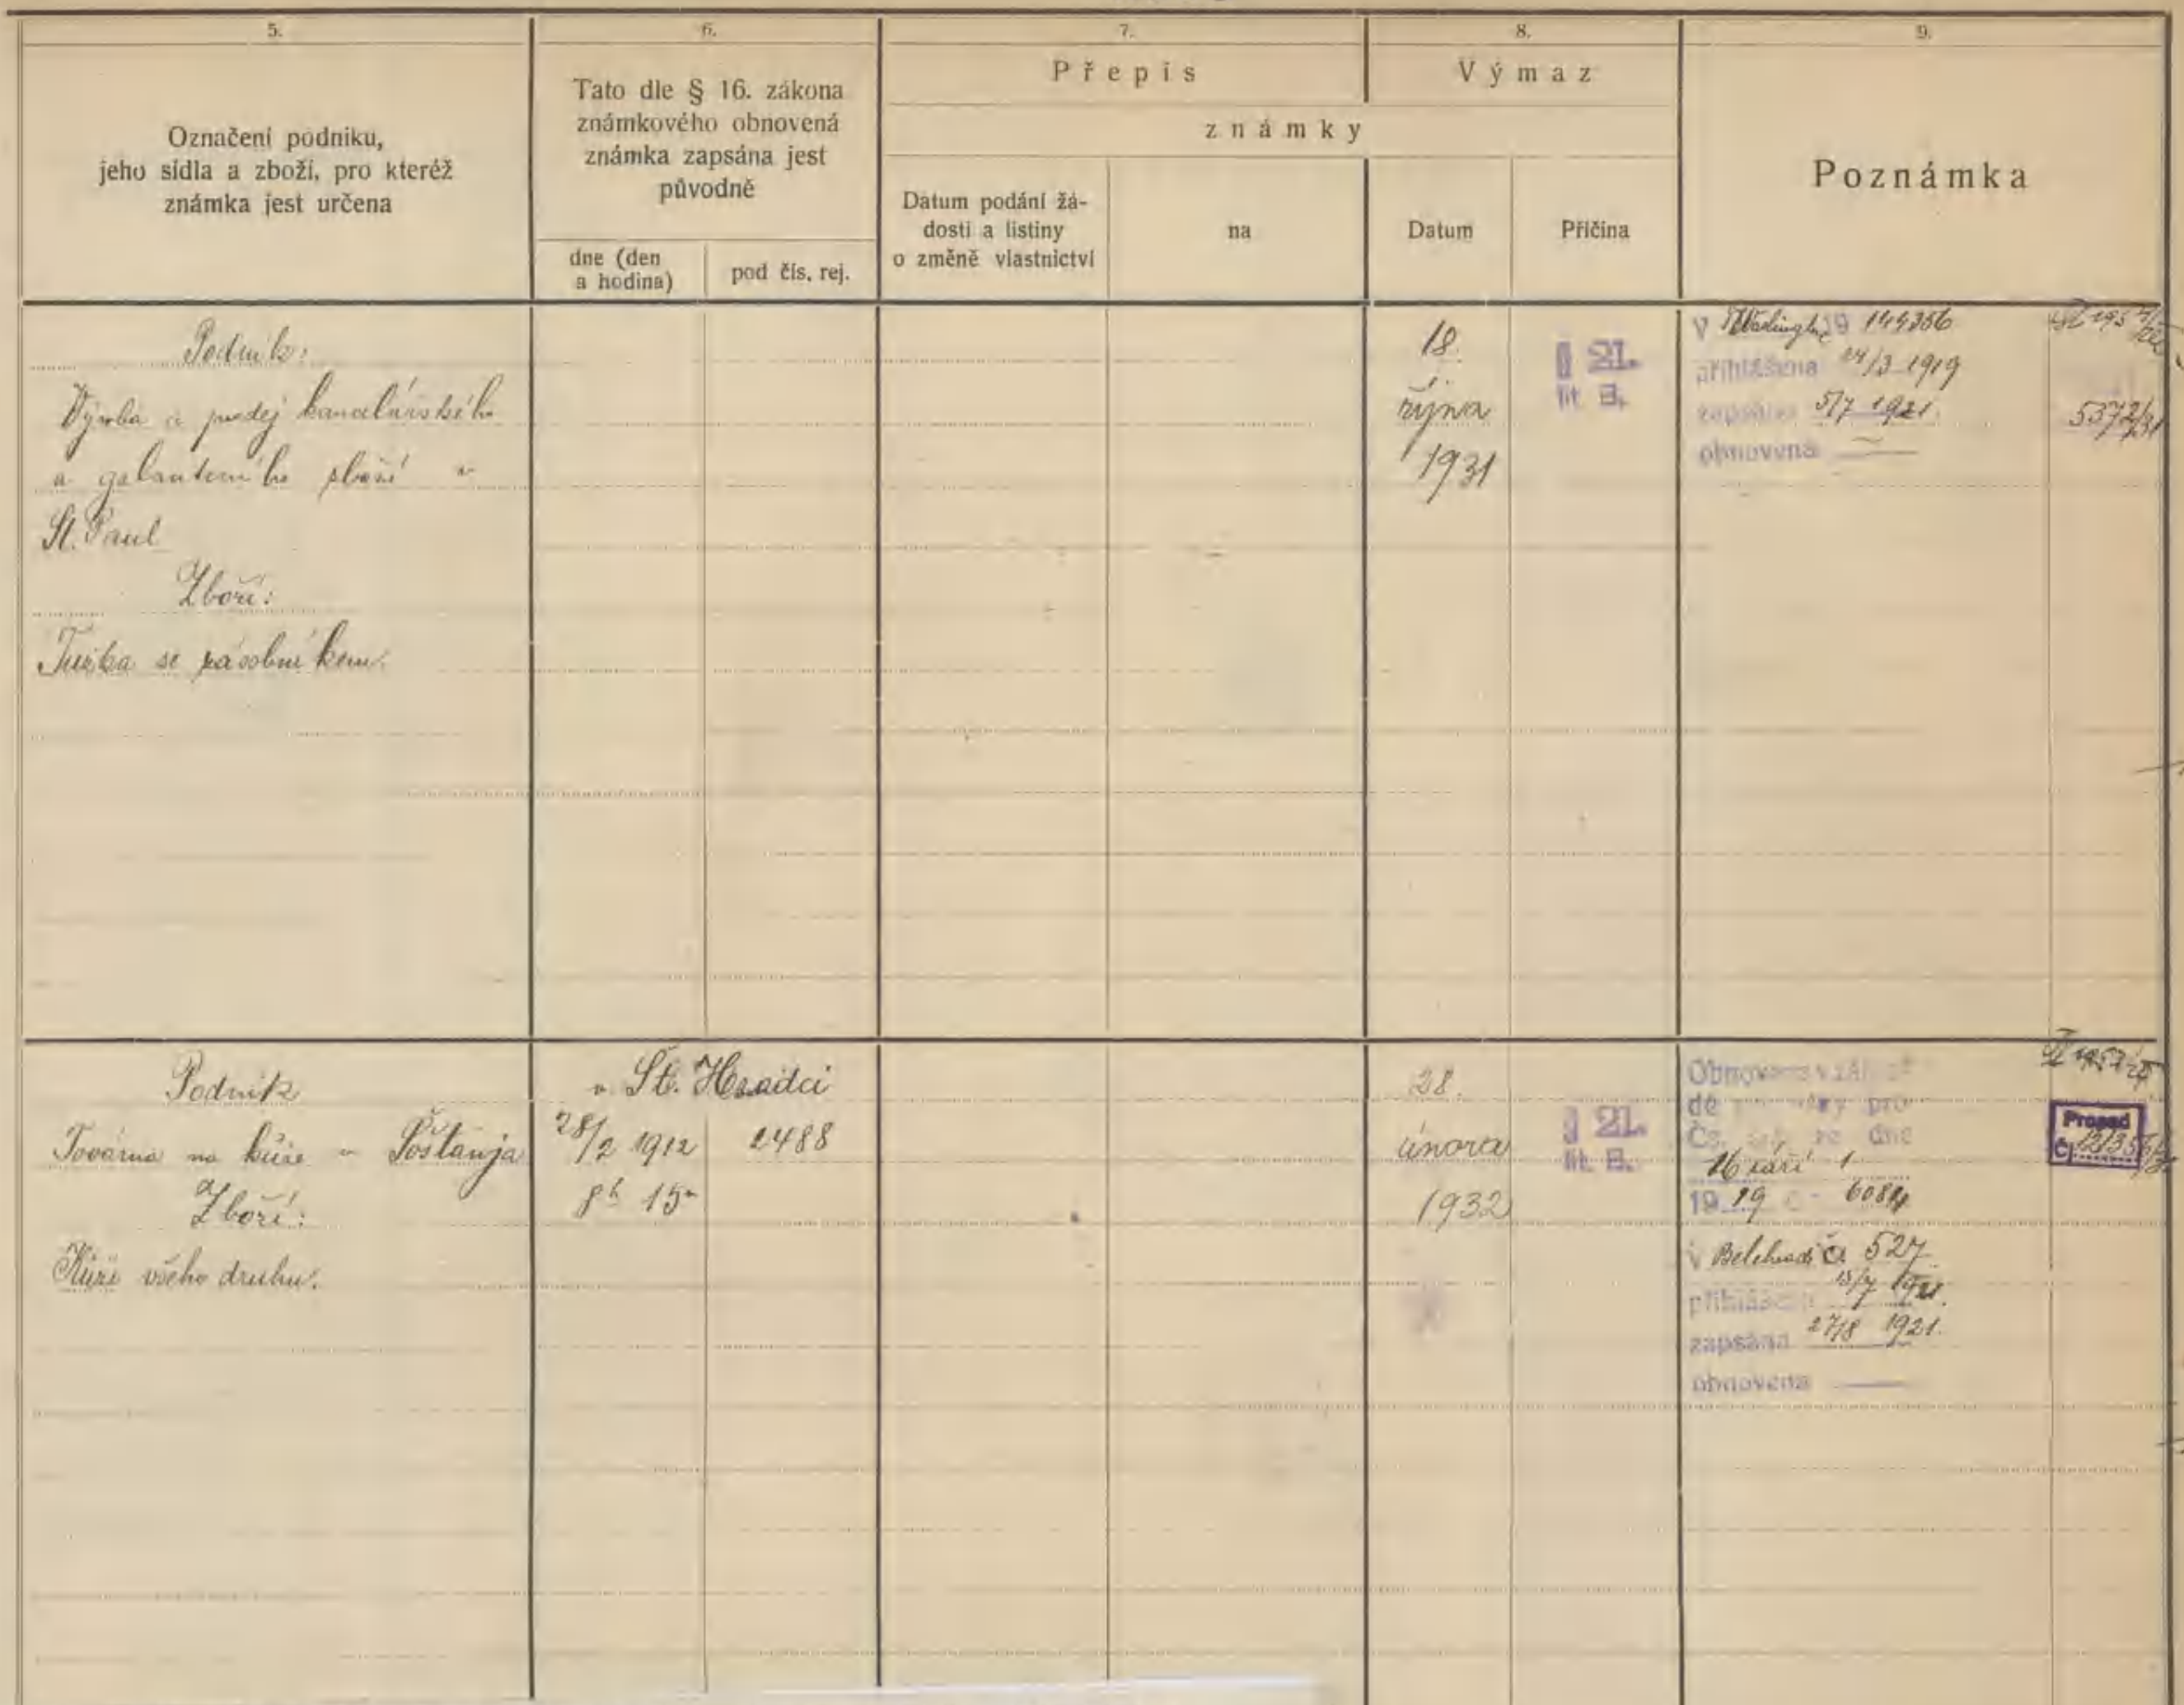 5.
6.
7.
8.
9.
Označení podniku,
jeho sídla a zboží, pro kteréž
známka jest určena
Tato dle § 16. zákona
známkového obnovená
známka zapsána jest
původně
dne (den
a hodina)
pod čís. rej.
Přepis
Výmaz
známky
Datum podání žá-
dosti a listiny
o změně vlastnictví
na
Datum
Příčina
Poznámka
Podnik:
Výroba a prodej kancelářského
a galanterního zboží v
St. Paul
Zboží:
Tužka se zásobníkem.
18.
října
1931
§ 21.
lit. B.
V 19 144356
přihlášena 24/3 1919
zapsána 5/7 1921.
obnovena —
5372/31
Podnik
Továrna na kůže v Šoštanja
Zboží:
Kůže všeho druhu.
v Št. Hradci
28/2 1912 2488
8h 15m
28.
února
1932
§ 21.
lit. B.
Obnovena
pro
dne
16 září 1
19 19 6084
v Bělehradě č. 527
přihlášena 15/7 1921.
zapsána 27/8 1921.
obnovena —
Propad
Č.